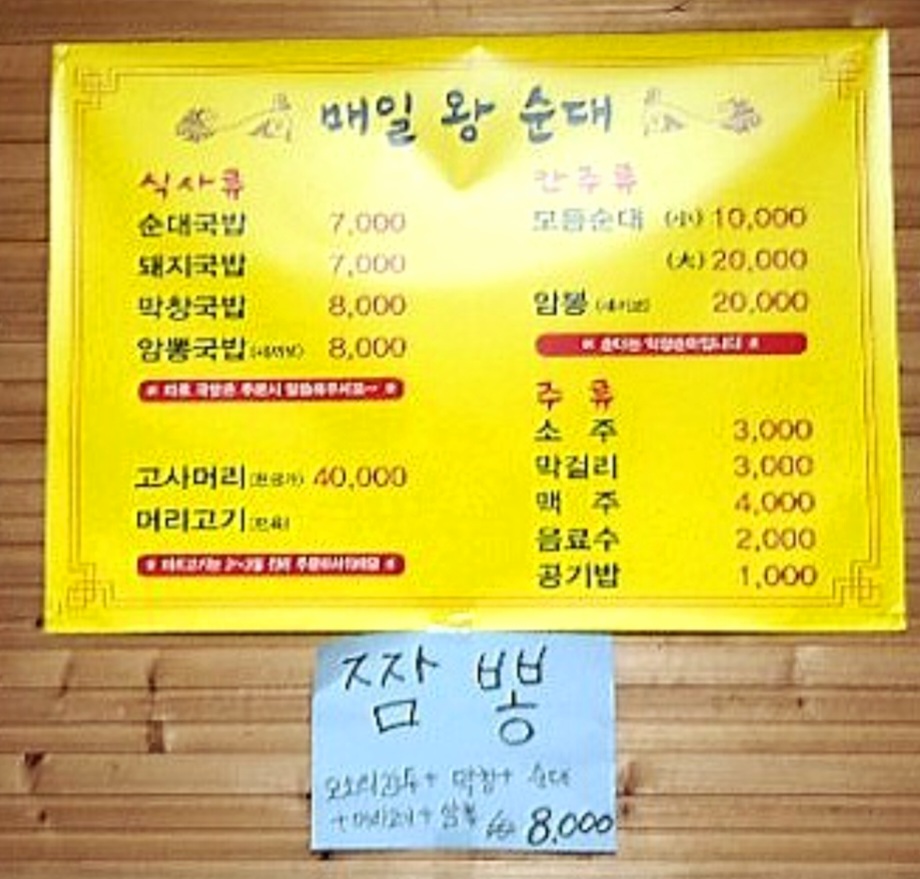 매일 왕 순대
식사류
순대국밥 7,000
돼지국밥 7,000
막창국밥 8,000
암뽕국밥 (새끼보) 8,000
※ 따로 국밥은 주문시 말씀해주세요~ ※
고사머리 40,000
머리고기
안주류
모듬순대 (小) 10,000
(大) 20,000
암뽕 (새끼보) 20,000
※ 순대는 막창순대입니다 ※
주 류
소 주 3,000
막걸리 3,000
맥 주 4,000
음료수 2,000
공기밥 1,000
짬 뽕
오소리감투 + 막창 + 순대
+ 머리고기 + 암뽕 8,000